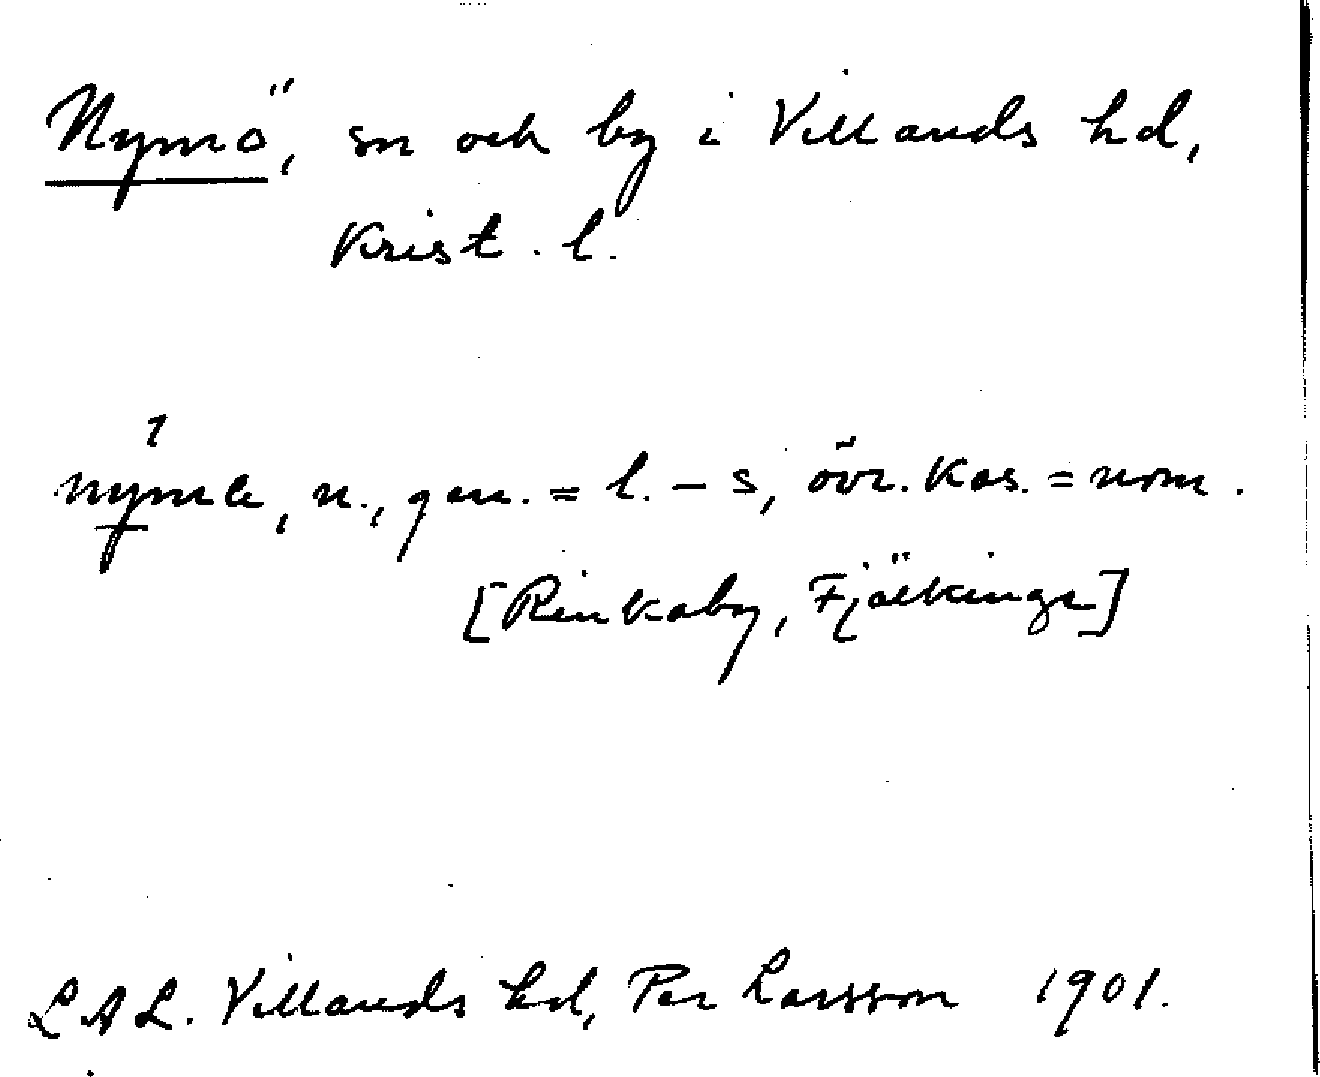 Nymö, sn och by i Villands hd,
Krist. l.
n., gen. = l. - s, övr. kas. = nom.
[Rinkaby, Fjälkinge]
LAL. Villands hd, Per Larsson 1901.